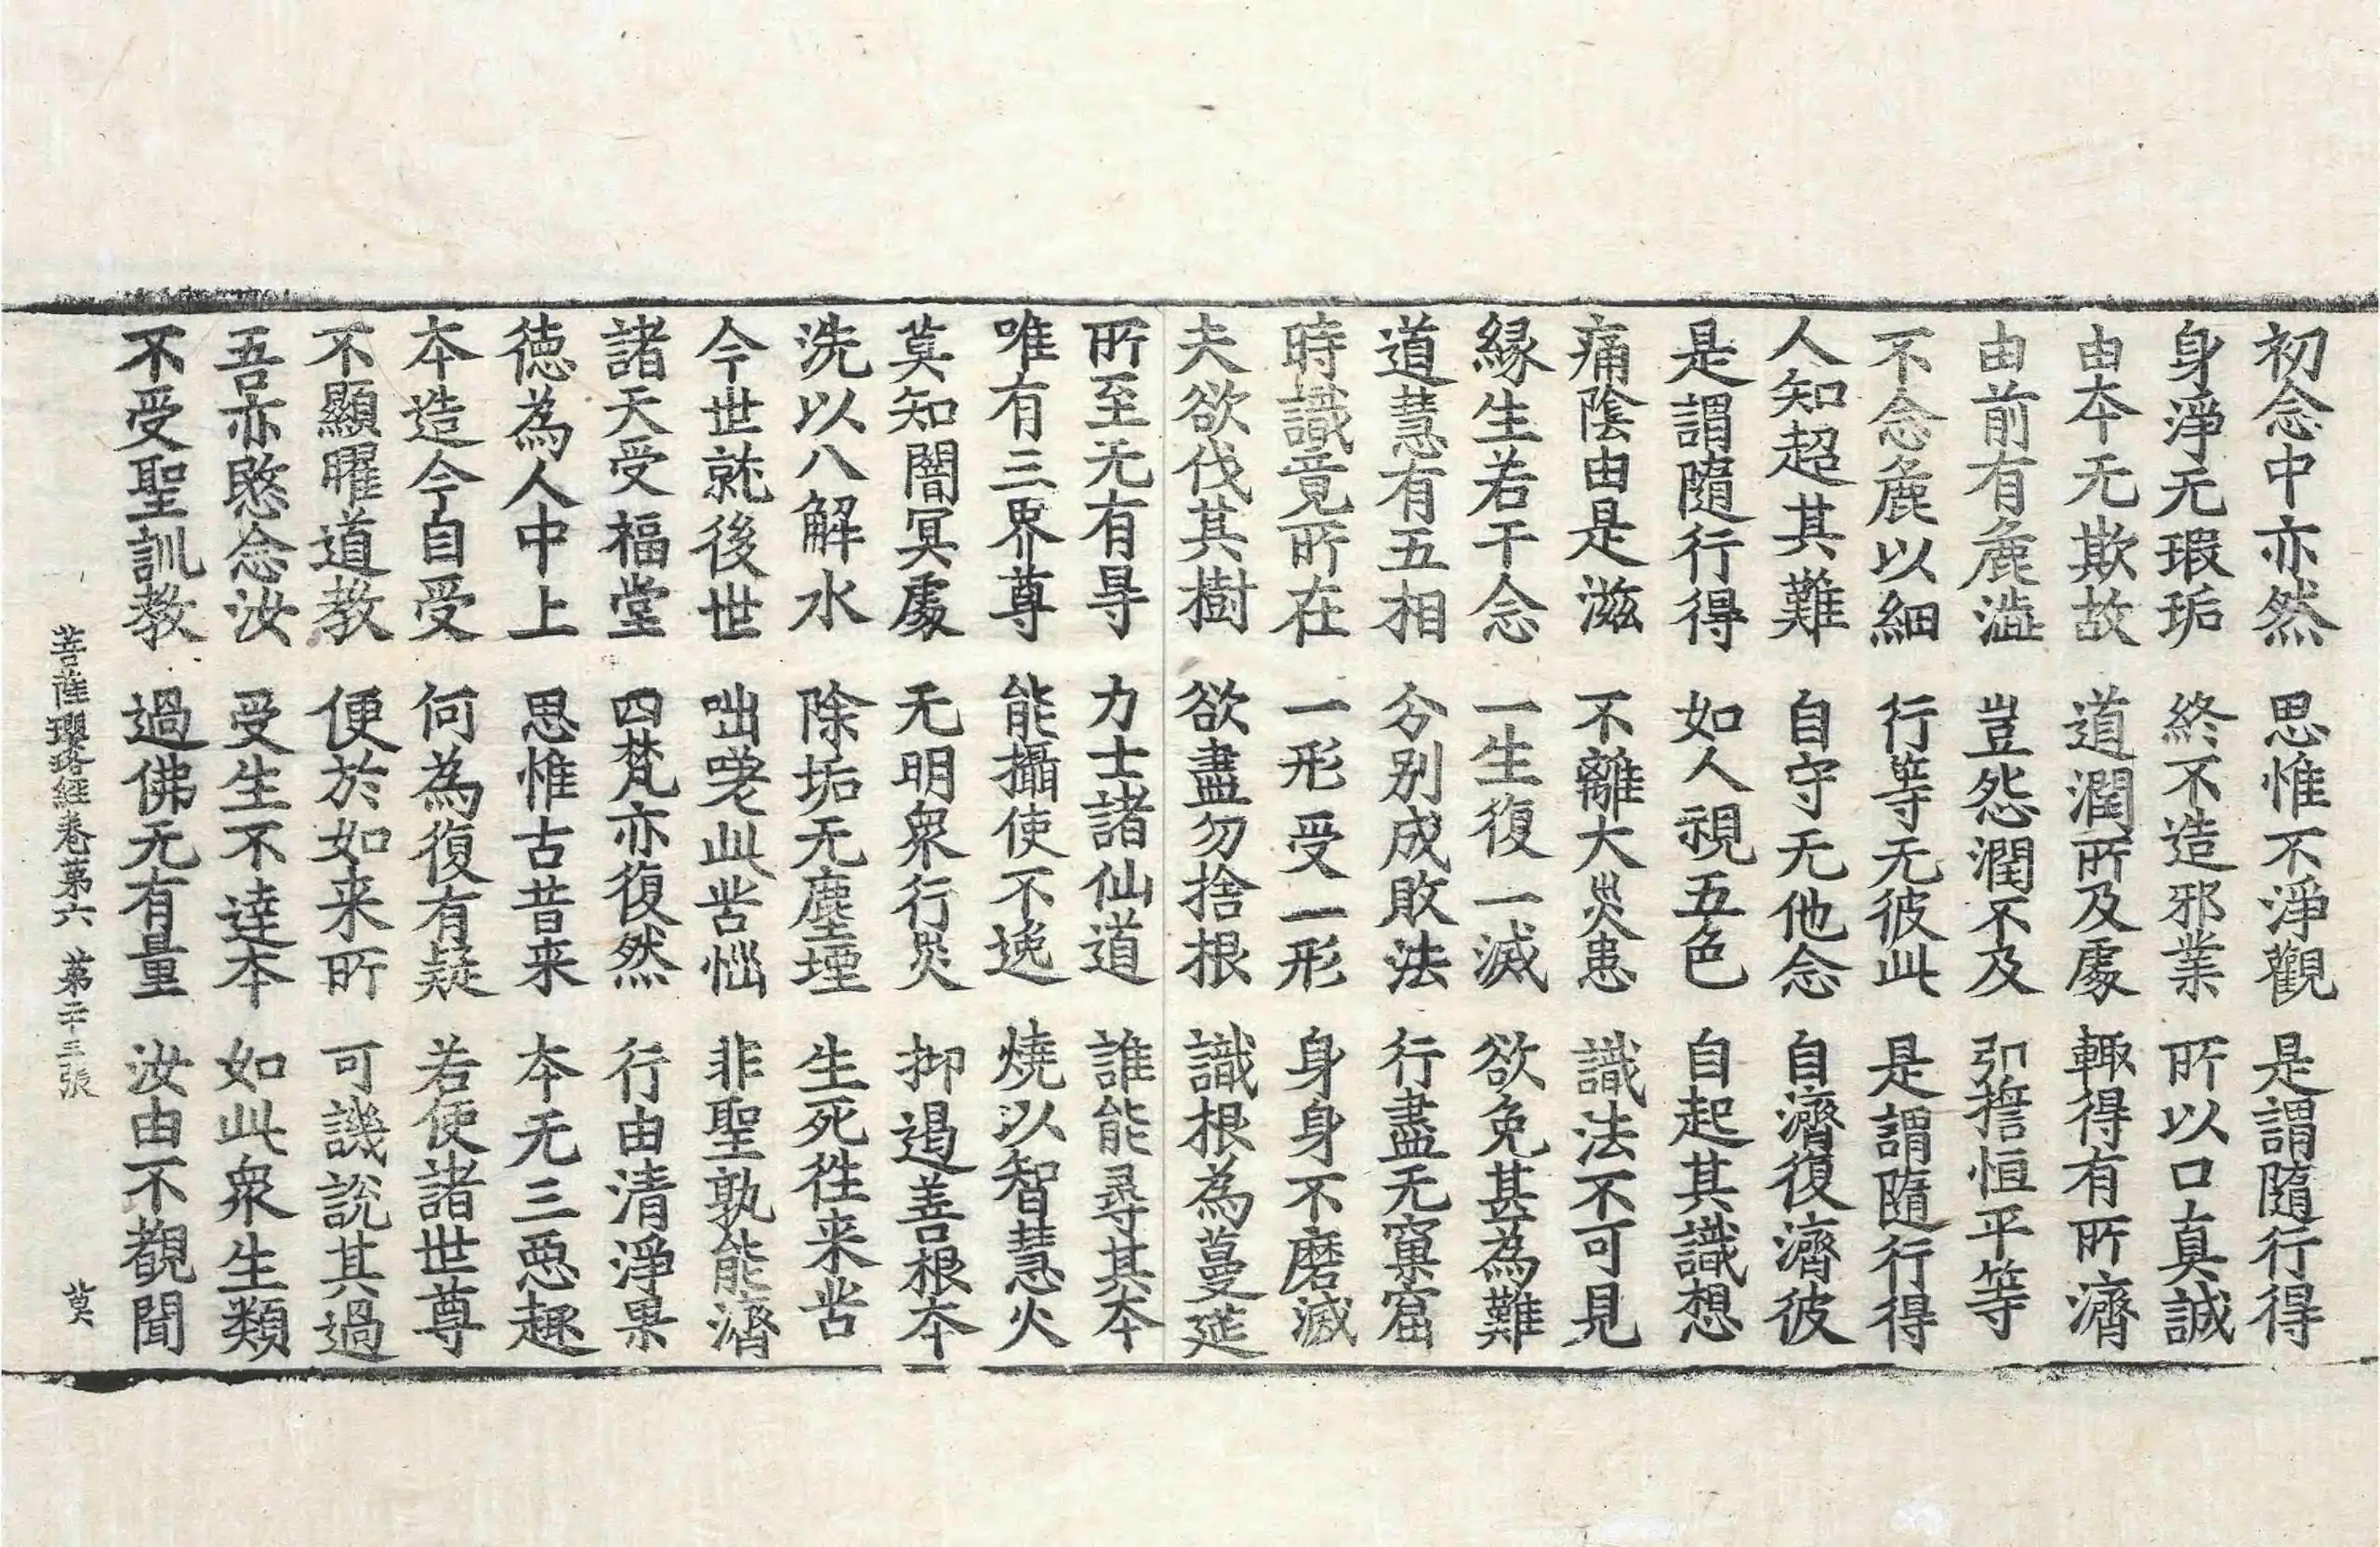 初念中亦然　思惟不淨觀　是謂隨行得
身淨无瑕垢　終不造邪業　所以口真誠
由本无欺故　道潤所及處　輙得有所濟
由前有麁澁　豈怨潤不及　引擔恒平等
不念麁以細　行等无彼此　是謂隨行得
人知超其難　自守无他念　自濟復濟彼
是謂隨行得　如人視五色　自起其識想
痛陰由是滋　不離大災患　識法不可見
緣生若干念　一生復一滅　欲免甚為難
道慧有五相　分別成敗法　行盡无窠窟
時識竟所在　一形受一形　身身不磨滅
夫欲伐其樹　欲盡勿捨根　識根為蔓莚
所至无有㝵　力士諸仙道　誰能尋其本
唯有三界尊　能攝使不逸　燒以智慧火
莫知闇冥處　无明衆行災　抑遏善根本
洗以八解水　除垢无塵堙　生死徃来苦
今世就後世　咄嗟此苦惱　非聖孰能濟
諸天受福堂　四梵亦復然　行由清淨果
德為人中上　思惟古昔来　本无三惡趣
本造今自受　何為復有疑　若使諸世尊
不顯曜道教　便於如来所　可譏說其過
吾亦愍念汝　受生不達本　如此衆生類
不受聖訓教　過佛无有量　汝由不覩聞
菩薩瓔珞經卷第六　第二十三張　莫